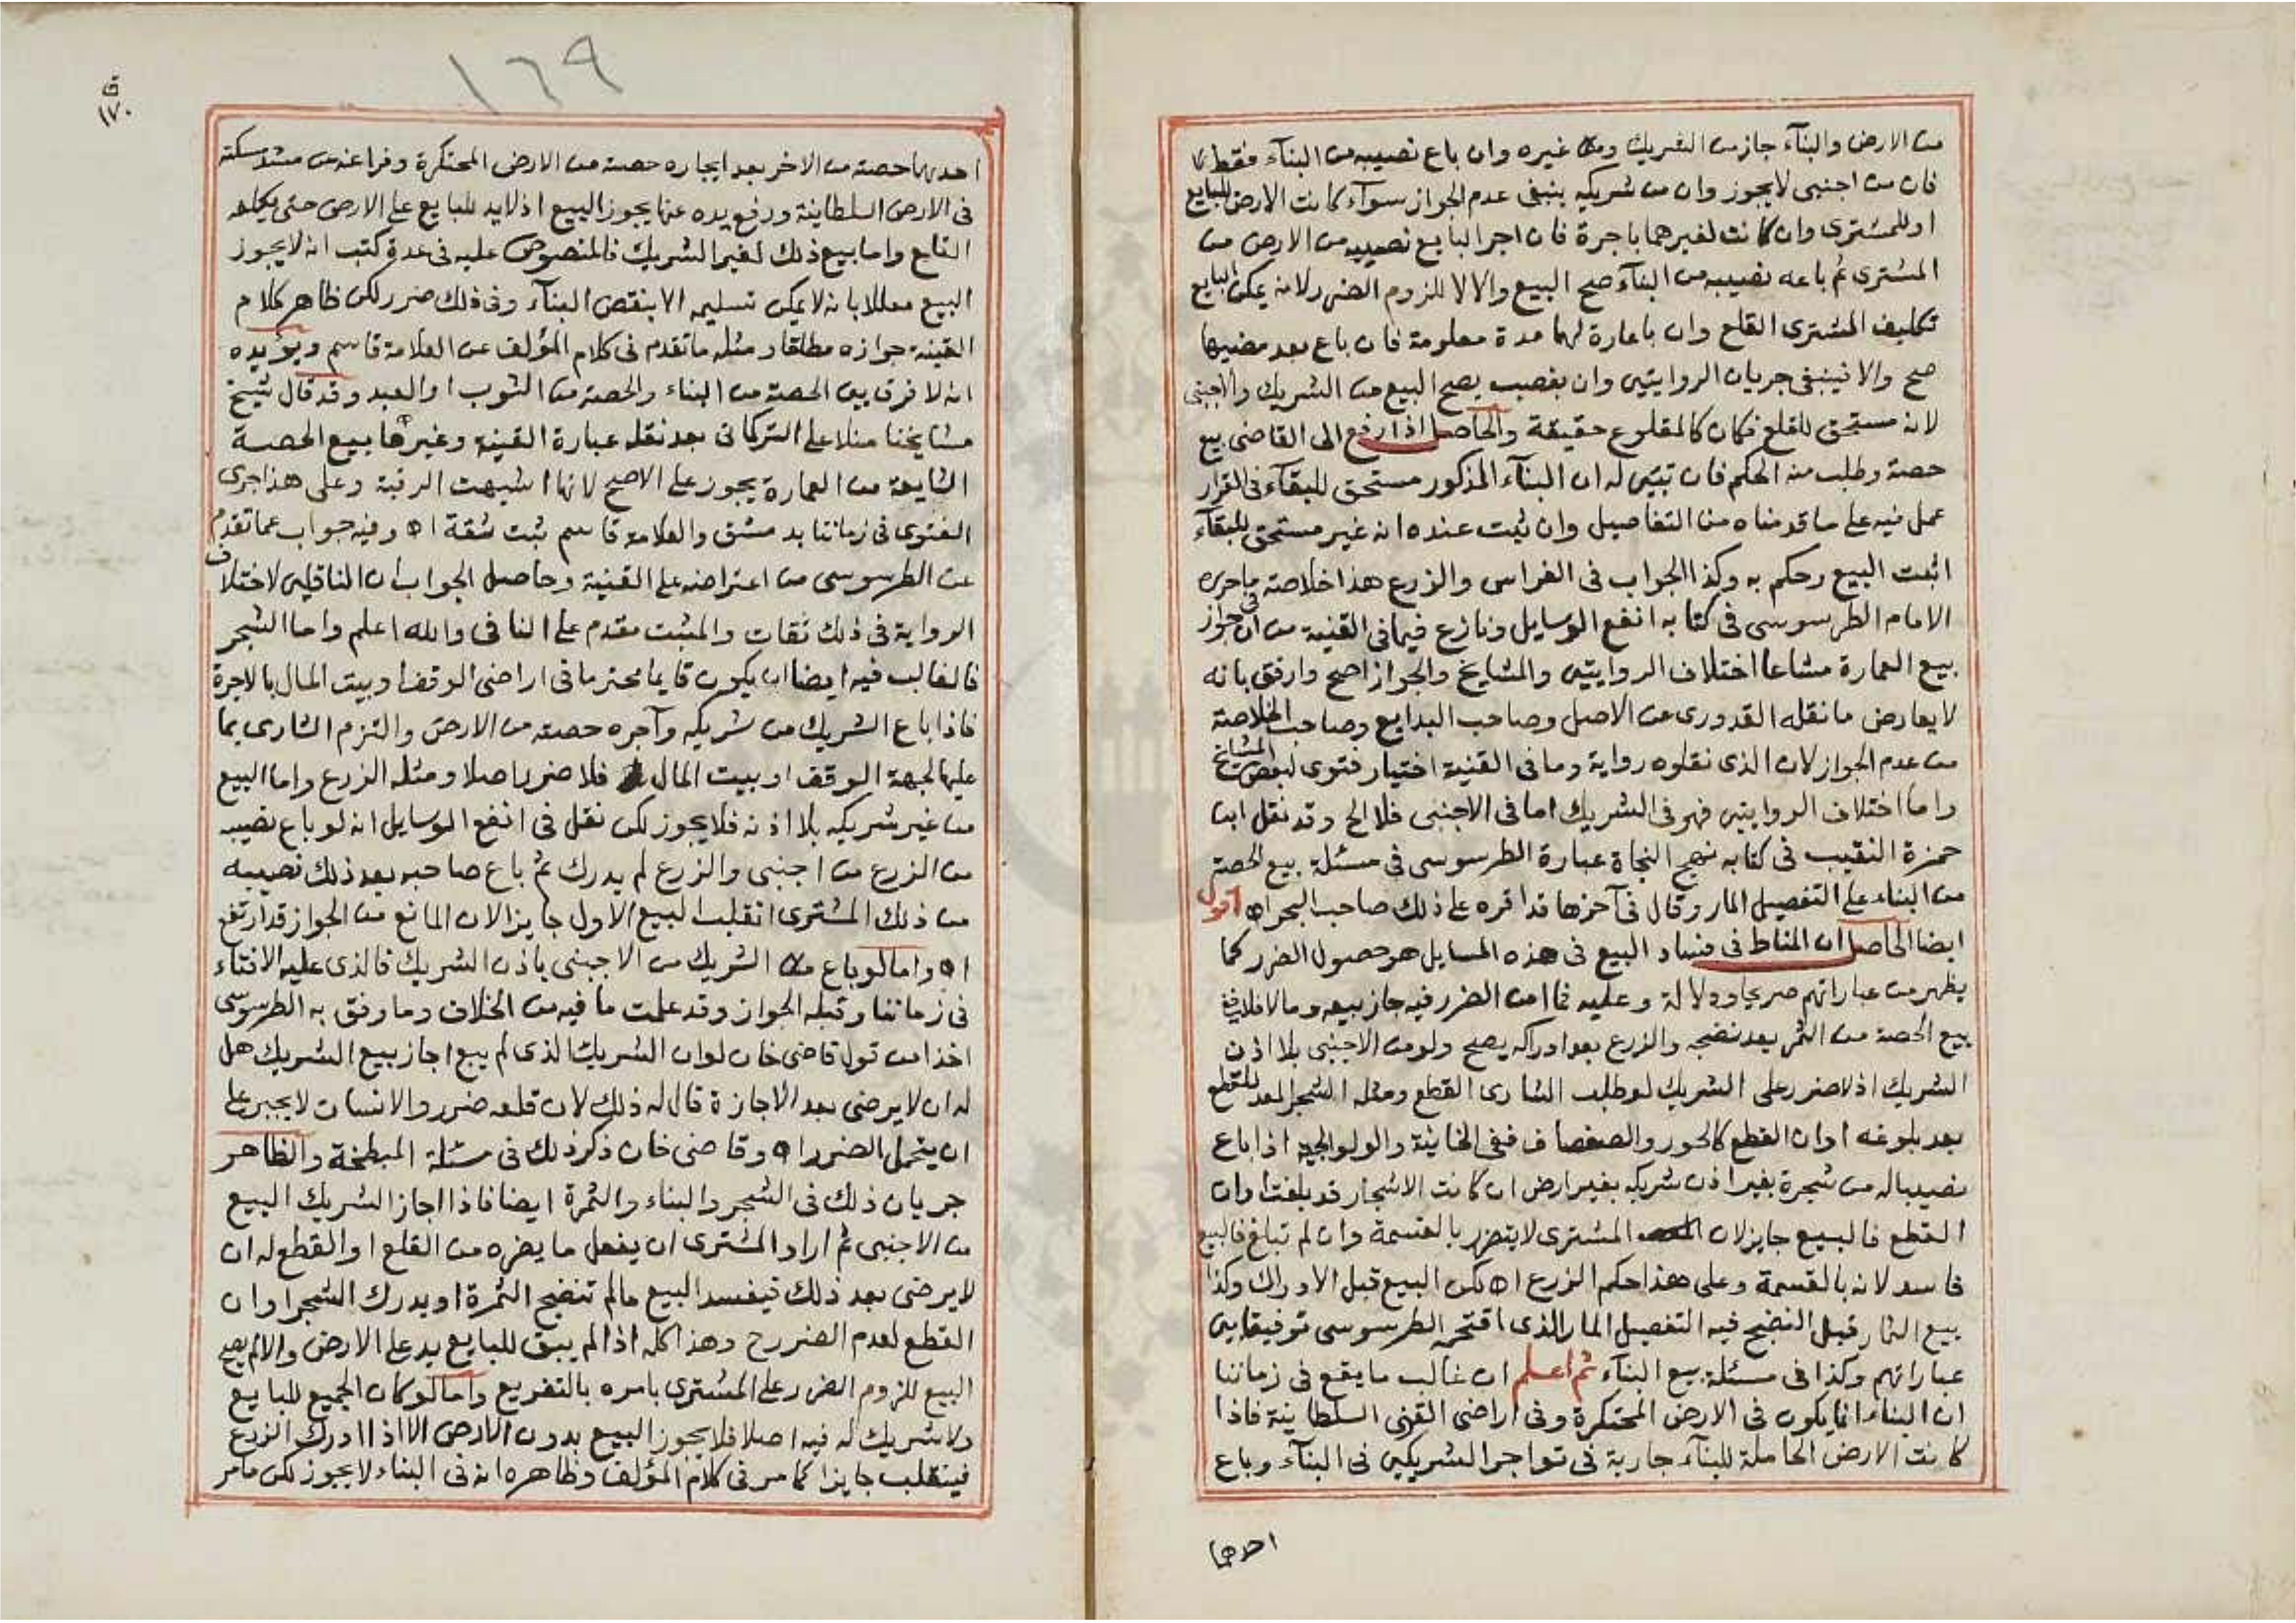 من الارض والبنآء جاز من الشريك ومن غيره وان باع نصيبه من البنآء فقط
فان من اجنبى لايجوز وان من شريكه ينبغى عدم الجواز سوآء كانت الارض للبايع
او للمشترى وان كانت لغيرهما باجرة فان اجر البايع نصيبه من الارض من
المشترى ثم باعه نصيبه من البنآء صح البيع والا لا للزوم الضرر لانه يمكن البايع
تكليف المشترى القلع وان باعارة لهما مدة معلومة فان باع بعد مضيها
صح والا فينبغى جريان الروايتين وان بغصب يصح البيع من الشريك والاجنبى
لانه مستحق للقلع فكان كالمقلوع حقيقة والحاصل اذا رفع الى القاضى بيع
حصة وطلب منه الحكم فان تبين له ان البنآء المذكور مستحق للبقآء فى القرار
عمل فيه على ما قدمناه من التفاصيل وان ثبت عنده انه غير مستحق للبقآء
اثبت البيع وحكم به وكذا الجواب فى الغراس والزرع هذا خلاصة ماحرره
الامام الطرسوسى فى كتابه انفع الوسايل ونازع فيما فى القنية من ان فى جواز
بيع العمارة مشاعا اختلاف الروايتين والمشايخ والجواز اصح وارفق بانه
لا يعارض ما نقله القدورى عن الاصل وصاحب البدايع وصاحب الخلاصة
من عدم الجواز لان الذى نقلوه رواية وما فى القنية اختيار فتوى لبعض المشايخ
واما اختلاف الروايتين فهو فى الشريك اما فى الاجنبى فلا الخ وقد نقل ابن
حمزة النقيب فى كتابه نهج النجاة عبارة الطرسوسى فى مسئلة بيع الحصة
من البناء على التفصيل المار وقال فى آخرها قد اقره على ذلك صاحب البحر اه اقول
ايضا الحاصل ان المناط فى فساد البيع فى هذه المسايل هو حصول الضرر كما
يظهر من عباراتهم صريحا ودلالة وعليه فما امن الضرر فيه جاز بيعه وما لا فلا ففى
بيع الحصة من الثمر بعد نضجه والزرع بعد ادراكه يصح ولو من الاجنبى بلا اذن
الشريك اذ لاضرر على الشريك لو طلب الشارى القطع ومثله الشجر المعد للقطع
بعد بلوغه اوان القطع كالحور والصفصاف ففى الخانية والولوالجية اذا باع
نصيبا له من شجرة بغير اذن شريكه بغير ارض ان كانت الاشجار قد بلغت اوان
القطع فالبيع جايز لان المشترى لايتضرر بالقسمة وان لم تبلغ فالبيع
فاسد لانه بالقسمة وعلى هذا حكم الزرع اه لكن البيع قبل الادراك وكذا
بيع الثمار قبل النضج فيه التفصيل المار الذى اقتحمه الطرسوسى توفيقا بين
عباراتهم وكذا فى مسئلة بيع البنآء ثم اعلم ان غالب ما يقع فى زماننا
ان البناء انما يكون فى الارض المحتكرة وفى اراضى القرى السلطانية فاذا
كانت الارض الحاملة للبنآء جارية فى تواجر الشريكين فى البنآء وباع
احدهما
١٦٩
ق
١٧٠
احدهما حصته من الاخر بعد ايجاره حصته من الارض المحتكرة وفراغه من مشد مسكته
فى الارض السلطانية ورفع يده عنها يجوز البيع اذ لايد للبايع على الارض حتى يكلفه
القلع واما بيع ذلك لغير الشريك فالمنصوص عليه فى عدة كتب انه لايجوز
البيع معللا بانه لايمكن تسليمه الا بنقض البنآء وفى ذلك ضرر لكن ظاهر كلام
القنية جوازه مطلقا ومثله ما تقدم فى كلام المؤلف عن العلامة قاسم ويؤيده
انه لا فرق بين الحصة من البناء والحصة من الثوب او العبد وقد قال شيخ
مشايخنا منلا على التركمانى بعد نقله عبارة القنية وغيرها بيع الحصة
الشايعة من العمارة يجوز على الاصح لانها اشبهت الرقبة وعلى هذا جرى
الفتوى فى زماننا بدمشق والعلامة قاسم ثبت ثقة اه وفيه جواب عما تقدم
عن الطرسوسى من اعتراضه على القنية وحاصل الجواب ان الناقلين لاختلاف
الرواية فى ذلك ثقات والمثبت مقدم على النافى والله اعلم واما الشجر
فالغالب فيه ايضا ان يكون قايما محترما فى اراضى الوقف او بيت المال بالاجرة
فاذا باع الشريك من شريكه وآجره حصته من الارض والتزم الشارى بما
عليها لجهة الوقف او بيت المال فلا ضرر اصلا ومثله الزرع واما البيع
من غير شريكه بلا اذنه فلا يجوز لكن نقل فى انفع الوسايل انه لو باع نصيبه
من الزرع من اجنبى والزرع لم يدرك ثم باع صاحبه بعد ذلك نصيبه
من ذلك المشترى انقلب البيع الاول جايزا لان المانع من الجواز قد ارتفع
اه واما لو باع الشريك من الاجنبى باذن الشريك فالذى عليه الافتاء
فى زماننا وقبله الجواز وقد علمت ما فيه من الخلاف وما وفق به الطرسوسى
اخذا من قول قاضى خان لو ان الشريك الذى لم يبع اجاز بيع الشريك هل
له ان لايرضى بعد الاجازة قال له ذلك لان قلعه ضرر والانسان لايجبر على
ان يتحمل الضرر اه وقاضى خان ذكر ذلك فى مسئلة المبطخة والظاهر
جريان ذلك فى الشجر والبناء والثمرة ايضا فاذا اجاز الشريك البيع
من الاجنبى ثم اراد المشترى ان يفعل ما يضره من القلع او القطع له ان
لايرضى بعد ذلك فيفسد البيع مالم تنضج الثمرة او يدرك الشجر اوان
القطع لعدم الضرر ح وهذا كله اذا لم يبق للبايع يد على الارض والا لم يصح
البيع للزوم الضرر على المشترى بامره بالتفريغ واما لو كان الجميع للبايع
ولا شريك له فيه اصلا فلا يجوز البيع بدون الارض الا اذا ادرك الزرع
فينقلب جايزا كما مر فى كلام المؤلف وظاهره انه فى البناء لايجوز لكن مامر